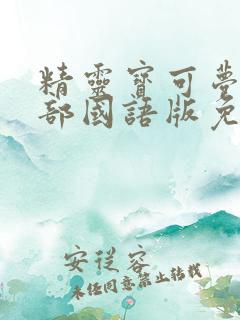 精靈寶可夢
部國語版免
安從容
未经同意禁止转载